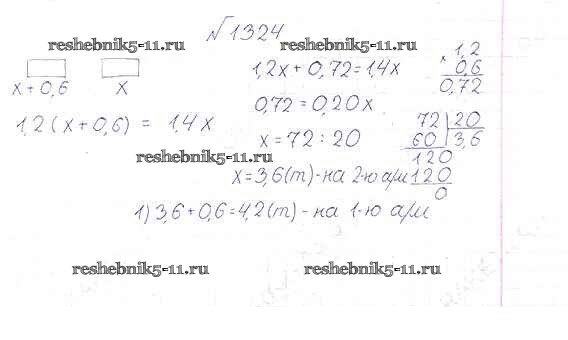 №1324
reshebnik5-11.ru
reshebnik5-11.ru
x+0,6 x
1,2(x+0,6) = 1,4x
1,2x+0,72=1,4x
0,72=0,20x
x=72:20
reshebnik5-11.ru
x=3,6(т)-на 2-ю а/м
1) 3,6+0,6=4,2(т)-на 1-ю а/м
× 1,2
0,6
0,72
72 20
60 3,6
120
120
0
reshebnik5-11.ru
reshebnik5-11.ru